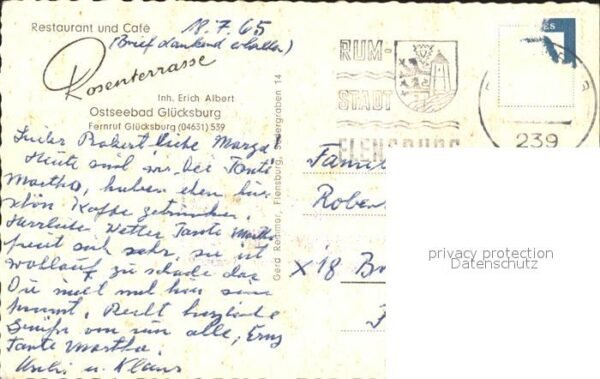 Restaurant und Café
18.7.65
(Brief dankend erhalten)
Rosenterrasse
Inh. Erich Albert
Ostseebad Glücksburg
Fernruf Glücksburg (04631) 539
Lieber Robert, liebe Marga
Heute sind wir bei Tante
Martha, haben eben hier
schön Kaffe getrunken.
Herrliches Wetter Tante Martha
freut sich sehr, sie ist
wohlauf, zu schade das
Du nicht mal hier sein
kannst. Recht herzliche
Grüße von uns alle,
Tante Martha.
u. Klaus
Gerd Remmer, Flensburg, Südergraben 14
RUM-
STADT
FLENSBURG
239
Famil
Rober
X18 B
privacy protection
Datenschutz